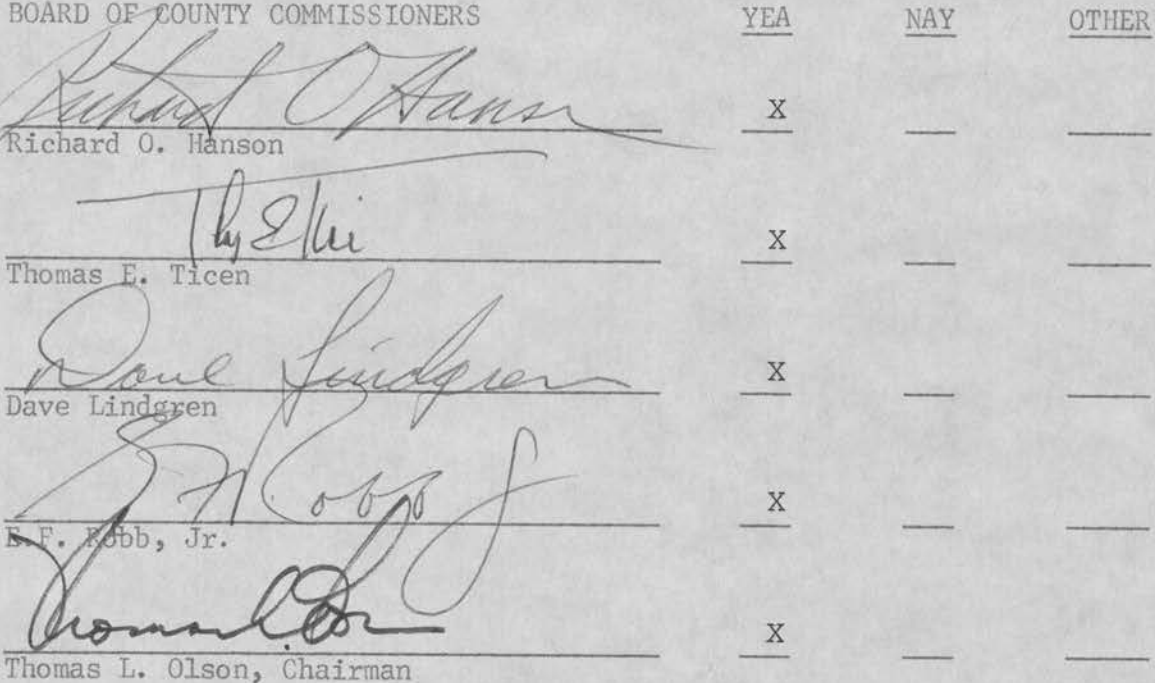 BOARD OF COUNTY COMMISSIONERS YEA NAY OTHER
Richard O Hanson X
Richard O. Hanson
X
Thomas E. Ticen
Dave Lindgren X
Dave Lindgren
E F Robb Jr X
E.F. Robb, Jr.
Thomas L. Olson X
Thomas L. Olson, Chairman